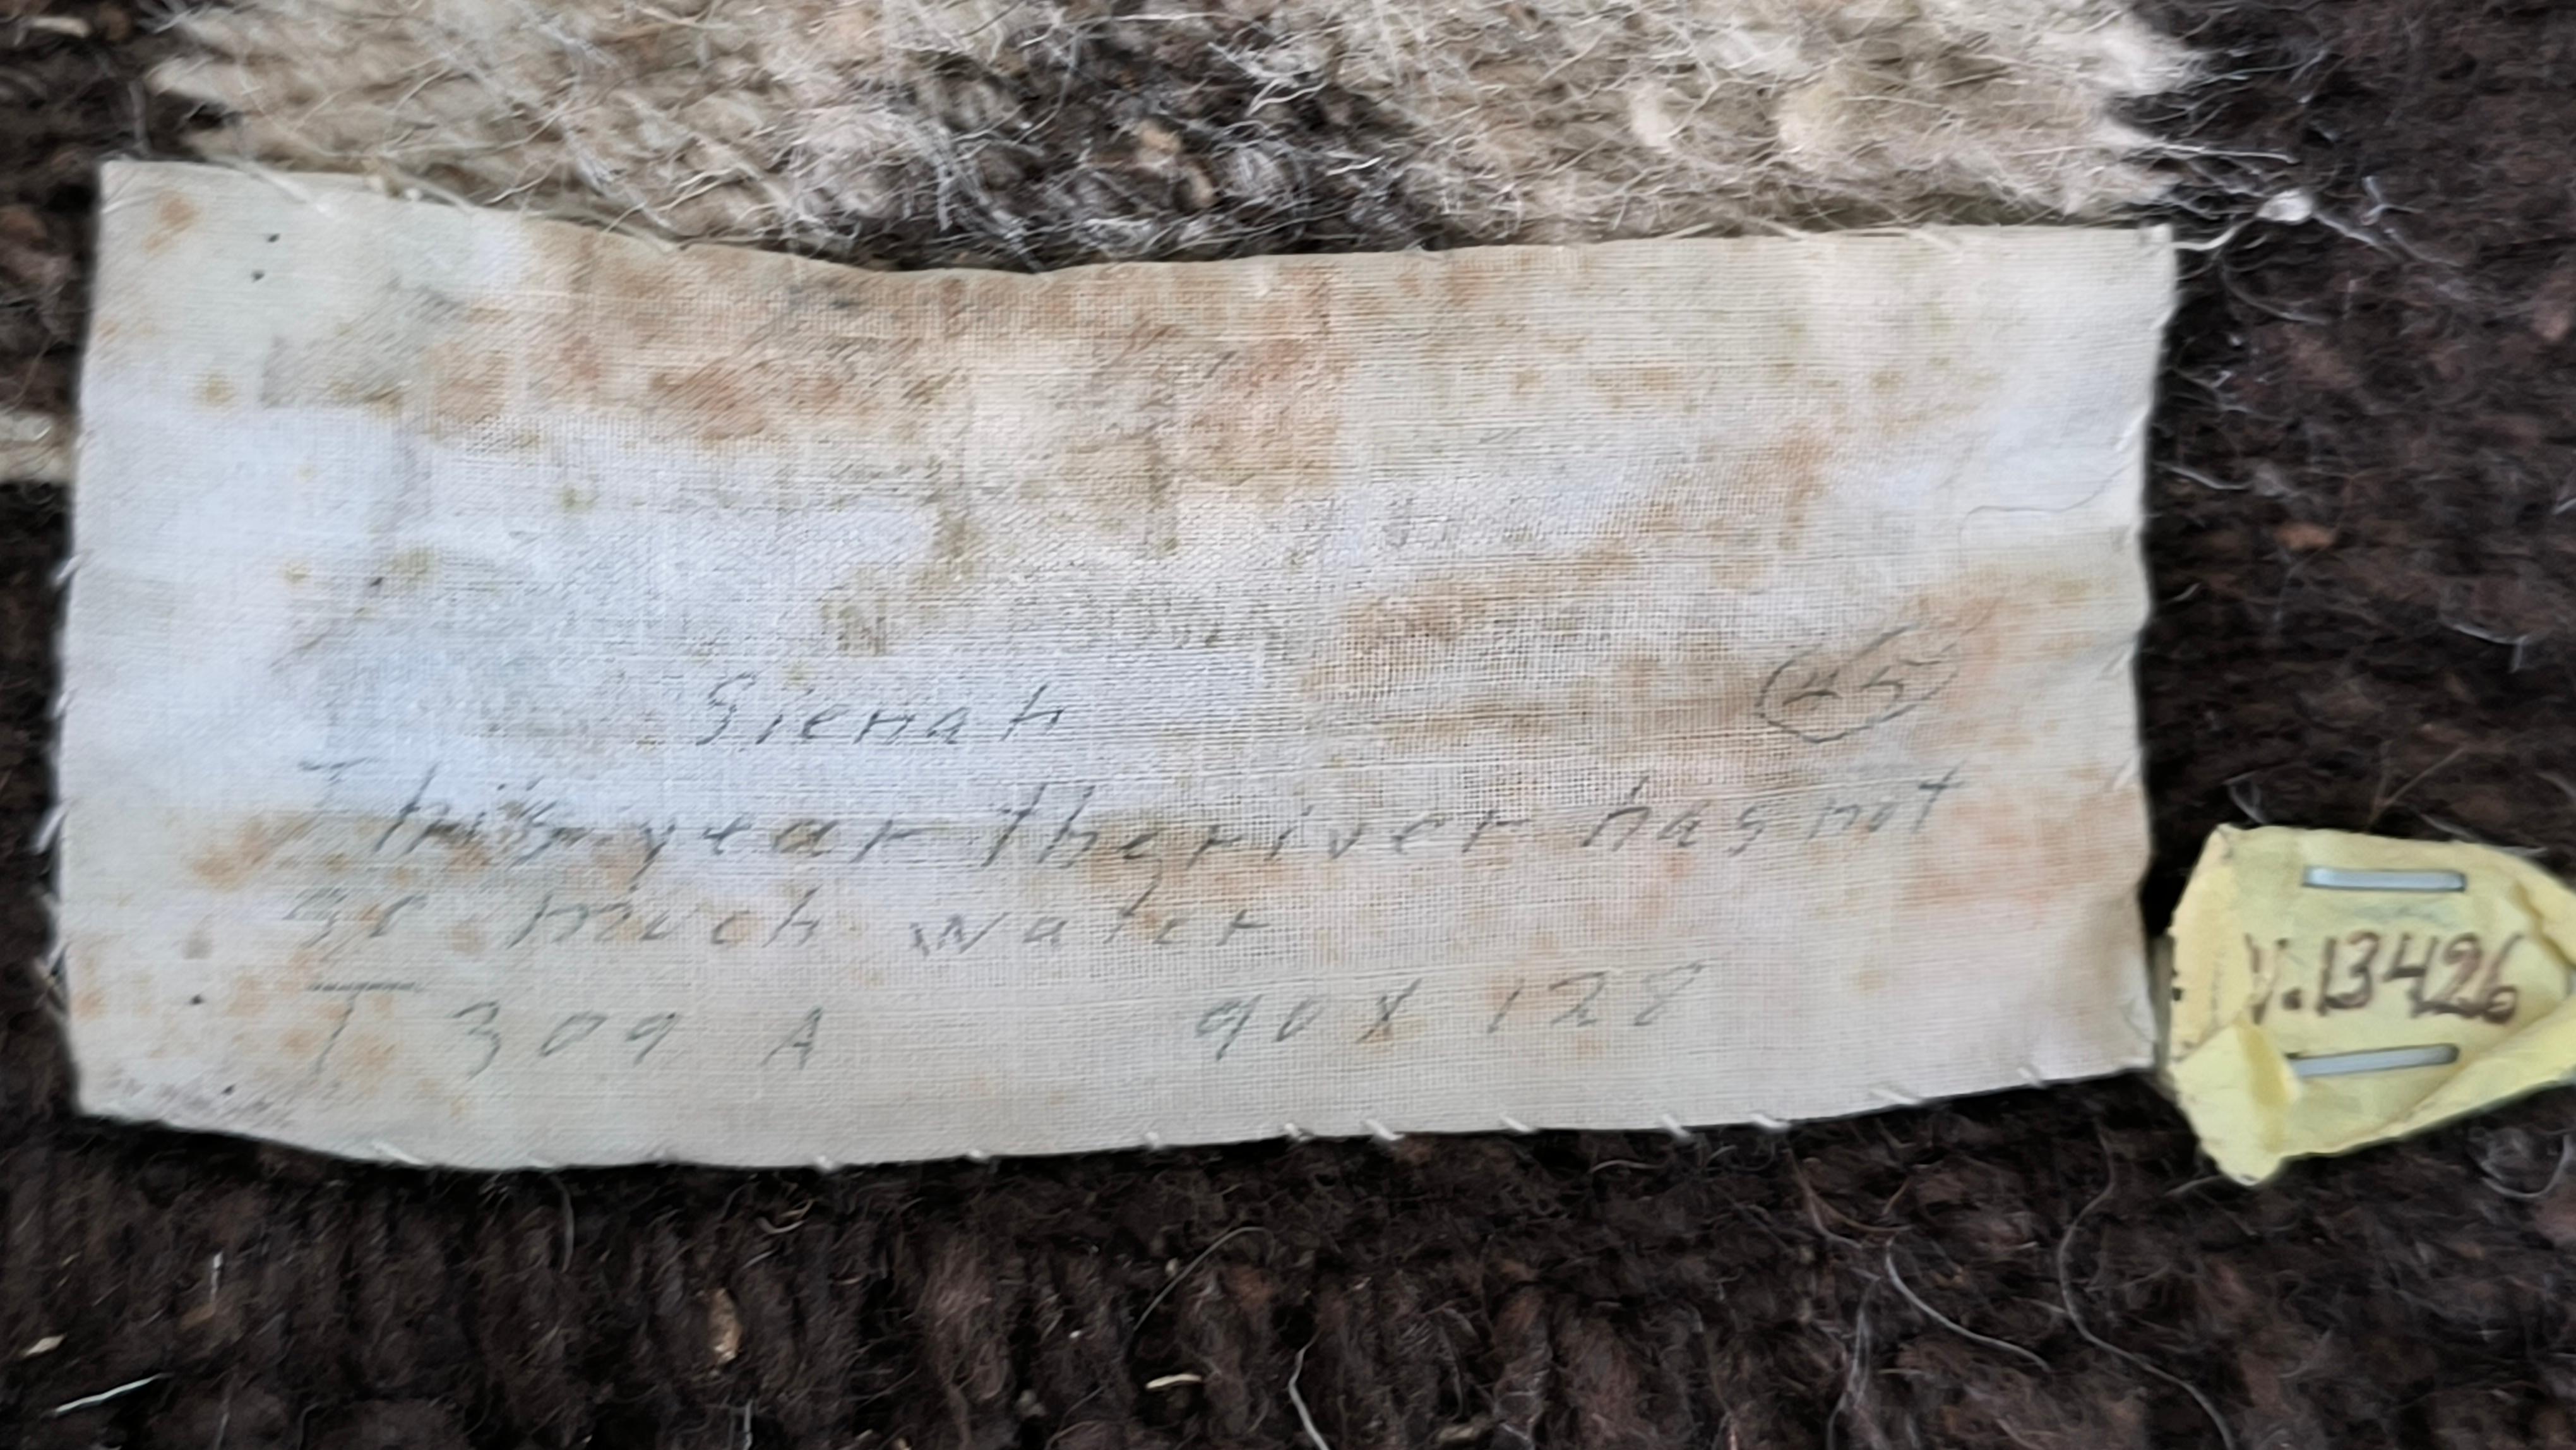 Sienah
45
This year the river has not
so much water
T 309 A 90 X 128
V.13426